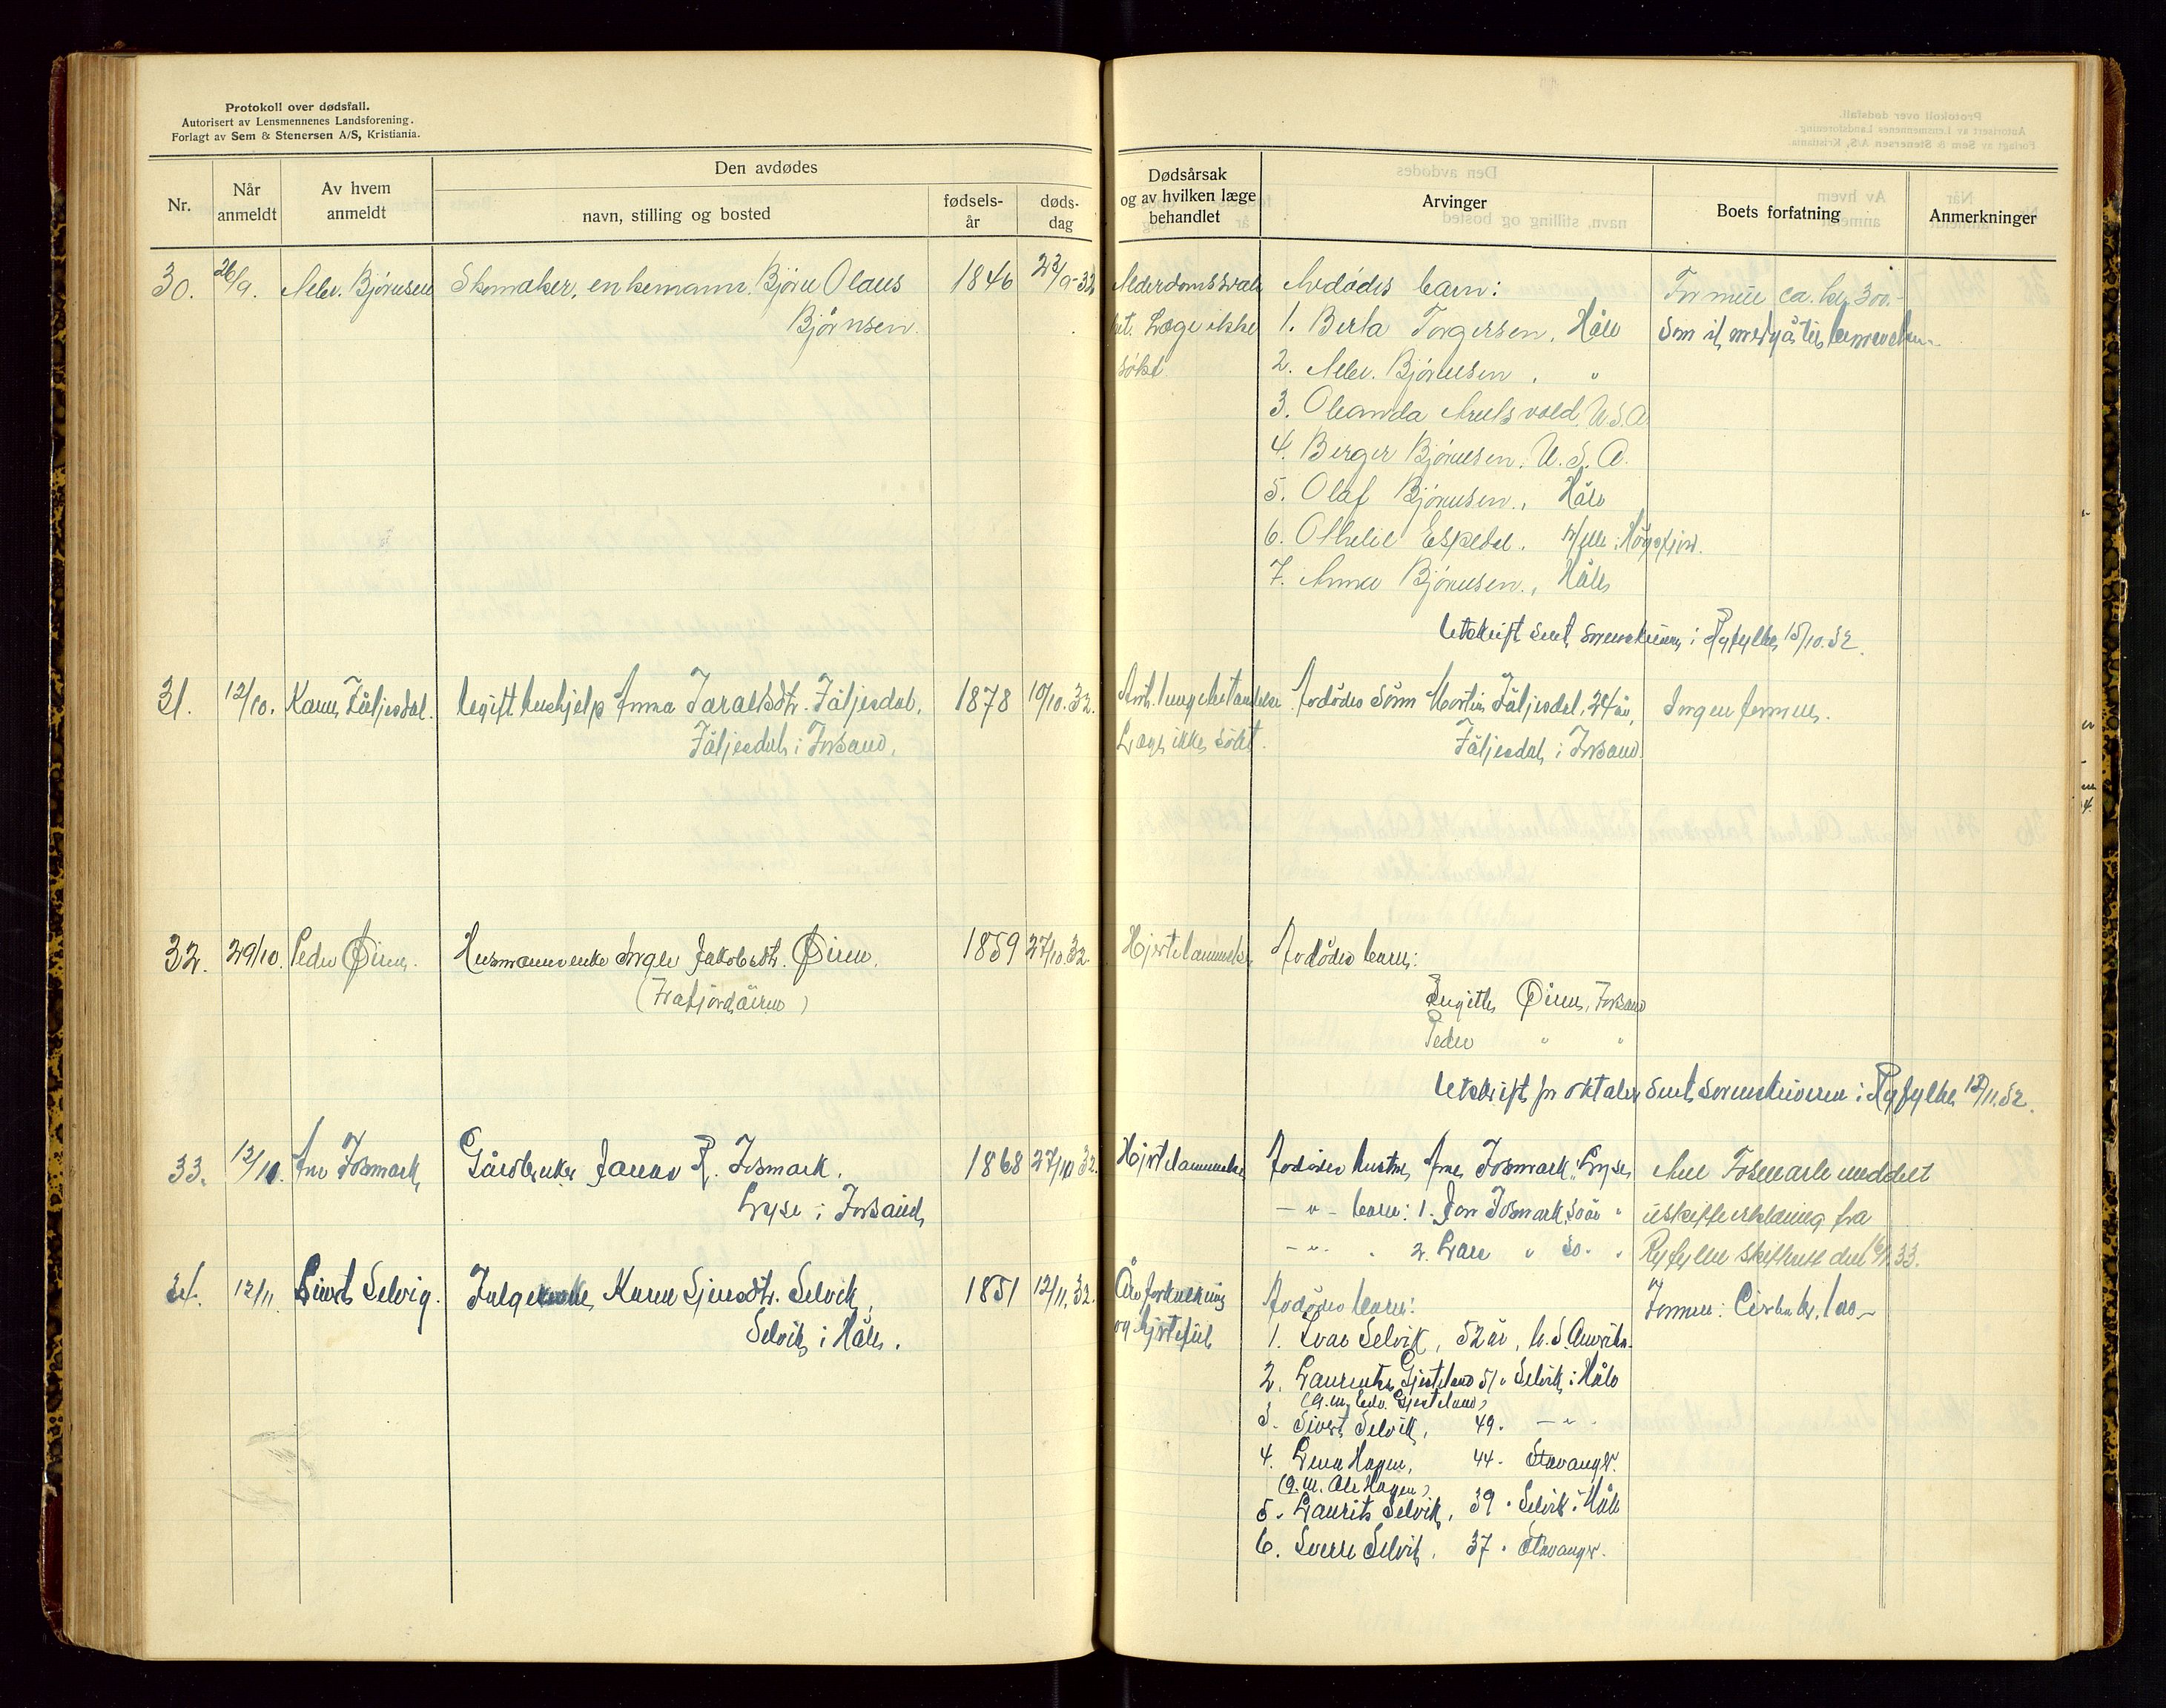 Protokoll over dødsfall.
Autorisert av Lensmennenes Landsforening.
Forlagt av Sem & Stenersen A/S, Kristiania.
Nr.
Når anmeldt
Av hvem anmeldt
Den avdødes
navn, stilling og bosted
fødsels-år
døds-dag
Dødsårsak og av hvilken læge behandlet
Arvinger
Boets forfatning
Anmerkninger
30. 26/9. Bjørnsen Skomaker, enkemann Bjørn Olaus 1846 23/9-32
Bjørnsen.
Alderdomssvak-
het. Læge ikke
søkt
Avdødes barn:
1. Berta Torgersen, Håle
2. Bjørnsen, "
3. Oleanda U.S.A.
4. Berger Bjørnsen, U.S.A.
5. Olaf Bjørnsen, Håle
6. Othelie Espedal, Høgsfjord.
7. Anna Bjørnsen, Håle
Formue ca. kr. 300.-
som vil medgå til begravelsen.
Utskrift sendt sorenskriveren i Ryfylke 15/10.32.
31. 12/10. Fåljesdal. Ugift hushjelp Anna Taraldsdtr. Fåljesdal, 1878 10/10.32.
Fåljesdal i Forsand.
Ant. lungebetendelse
Læge ikke søkt.
Avdødes sønn Martin Fåljesdal, 24 år,
Fåljesdal i Forsand.
Ingen formue.
32. 29/10. Peder Øiren. Husmannsenke Jakobsdtr. Øiren. 1859 27/10.32.
(Frafjordøiren)
Hjertelammelse
Avdødes barn:
Øiren, Forsand
Peder " "
Utskrift for oktober sendt sorenskriveren i Ryfylke 12/11.32.
33. 12/10. Ane Fosmark, Gårdbruker R. Fosmark, 1868 27/10 32.
Lyse i Forsand,
Hjertelammelse
Avdødes hustru Ane Fosmark, Lyse,
- " - barn: 1. Jon Fosmark, "
- " - " 2. Lars " 30. "
Ane Fosmark meddelt
uskifteerklæring fra
Ryfylke skifterett den 33.
34. 12/11. Sivert Selvig. Karen Sjursdtr. Selvik, 1851 12/11.32.
Selvik i Håle.
Åreforkalkning
og hjertefeil
Avdødes barn:
1. Ivar Selvik, 52 år, U.S. Amerika.
2. Gjesteland 51 " Selvik i Håle
(g.m. Edv. Gjesteland)
3. Sivert Selvik, 49. - " -
4. Lena Hagen, 44 - Stavanger.
(g.m. Ole Hagen)
5. Laurits Selvik, 39 " Selvik i Håle
6. Sverre Selvik, 37 " Stavanger.
Formue: Cirka kr. 100.-